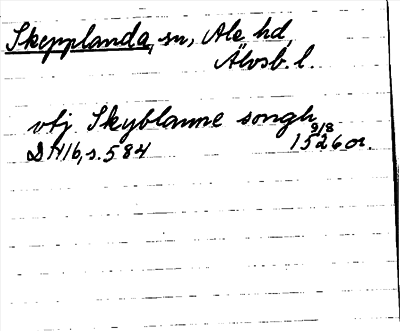 Skepplanda, sn, Ale hd,
Älvsb. l.
vtj Skyblanne songh
9/8
DN 16, s. 584 1526 or.